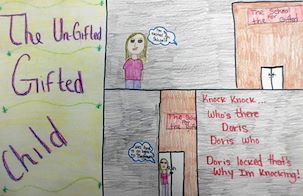 The Un-Gifted
Gifted
Child
The School
for Gifted
Knock Knock...
Who's there
Doris
Doris who
Doris locked that's
Why I'm knocking!